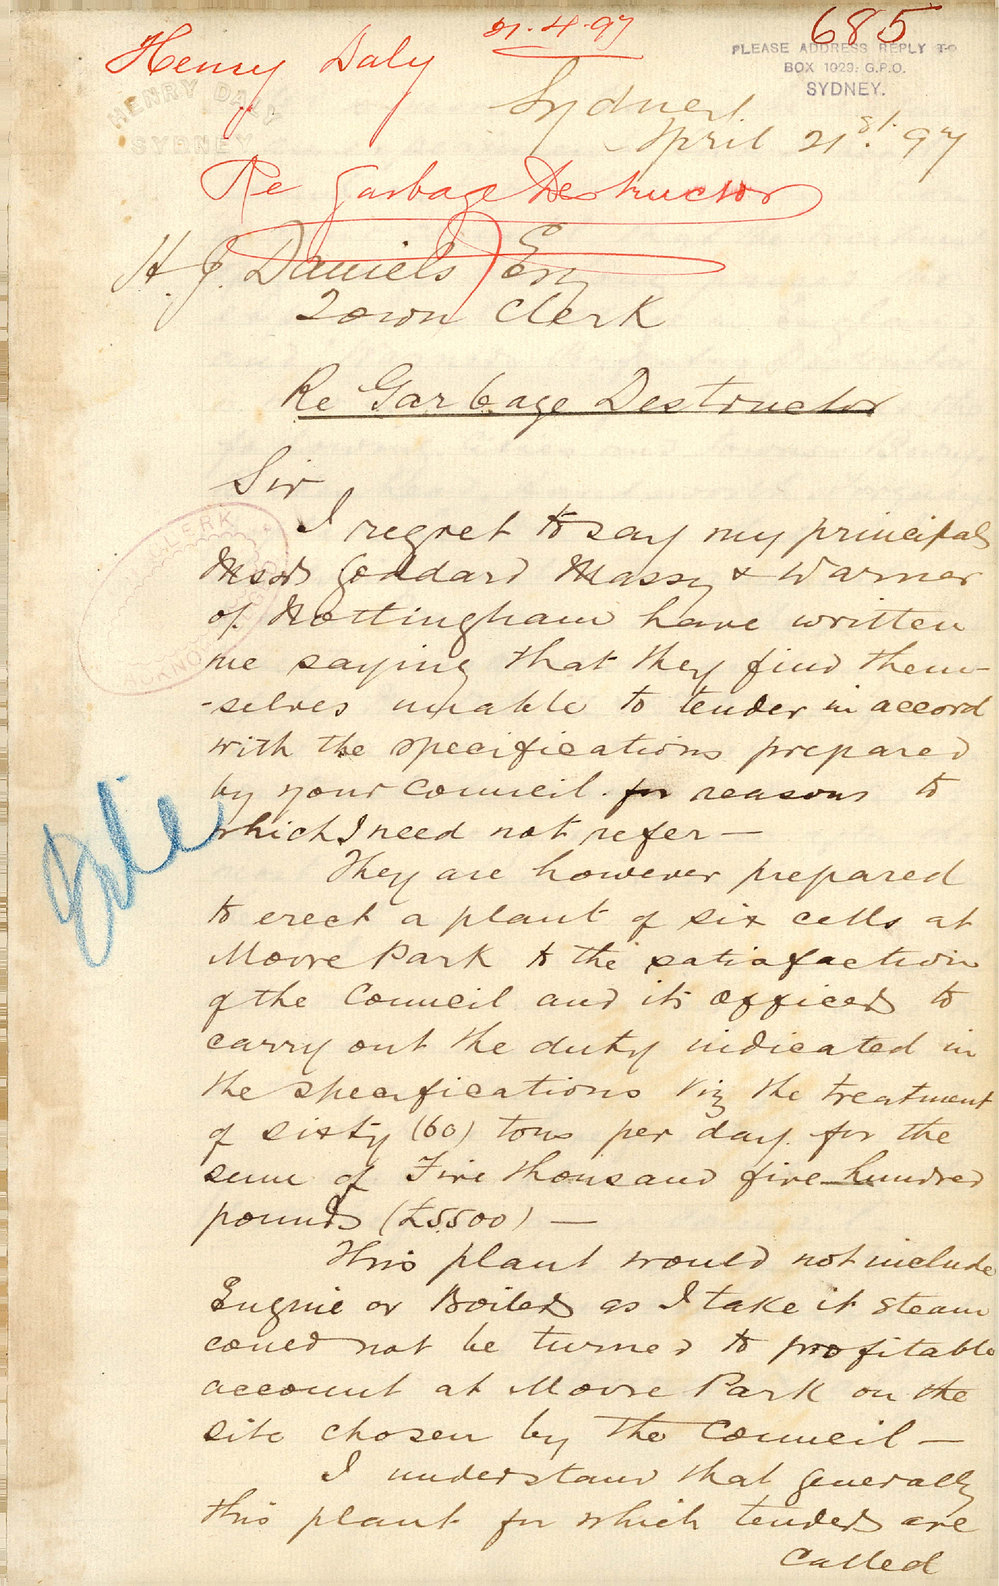 685
21.4.97
Henry Daly
PLEASE ADDRESS REPLY TO
BOX 1029: G.P.O.
SYDNEY.
HENRY DALY
SYDNEY
Sydney
April 21st. 97
Re Garbage Destructor
H. J. Daniels Esq
Town Clerk
Re Garbage Destructor
Sir
I regret to say my principals
Messrs Goddard Massey & Warner
of Nottingham have written
me saying that they find them-
-selves unable to tender in accord
with the specifications prepared
by your Council. for reasons to
which I need not refer —
They are however prepared
to erect a plant of six cells at
Moore Park to the satisfaction
of the Council and its officers to
carry out the duty indicated in
the specifications viz the treatment
of sixty (60) tons per day. for the
sum of Five thousand five hundred
pounds (£5500) —
This plant would not include
Engine or Boilers as I take it steam
could not be turned to profitable
account at Moore Park on the
site chosen by the Council —
I understand that generally
this plant for which tenders are
called
CLERK